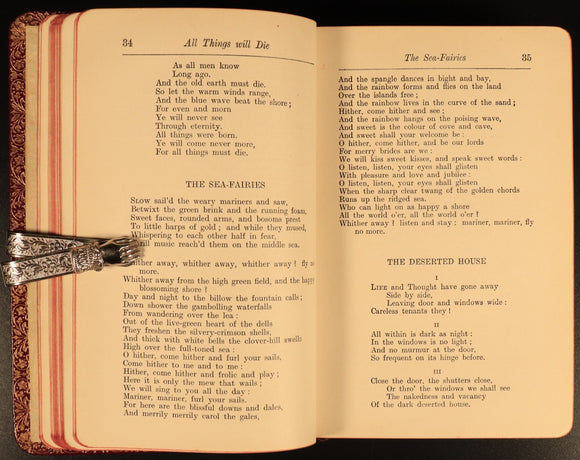 34 All Things will Die
As all men know
Long ago.
And the old earth must die.
So let the warm winds range,
And the blue wave beat the shore;
For even and morn
Ye will never see
Through eternity.
All things were born.
Ye will come never more,
For all things must die.
THE SEA-FAIRIES
SLOW sail'd the weary mariners and saw,
Betwixt the green brink and the running foam,
Sweet faces, rounded arms, and bosoms prest
To little harps of gold; and while they mused,
Whispering to each other half in fear,
music reach'd them on the middle sea.
away, whither away, whither away? fly no
more.
Whither away from the high green field, and the happy
blossoming shore?
Day and night to the billow the fountain calls;
Down shower the gambolling waterfalls
From wandering over the lea:
Out of the live-green heart of the dells
They freshen the silvery-crimson shells,
And thick with white bells the clover-hill swells
High over the full-toned sea:
O hither, come hither and furl your sails,
Come hither to me and to me:
Hither, come hither and frolic and play;
Here it is only the mew that wails;
We will sing to you all the day:
Mariner, mariner, furl your sails.
For here are the blissful downs and dales,
And merrily merrily carol the gales,
The Sea-Fairies 35
And the spangle dances in bight and bay,
And the rainbow forms and flies on the land
Over the islands free;
And the rainbow lives in the curve of the sand;
Hither, come hither and see;
And the rainbow hangs on the poising wave,
And sweet is the colour of cove and cave,
And sweet shall your welcome be:
O hither, come hither, and be our lords
For merry brides are we:
We will kiss sweet kisses, and speak sweet words:
O listen, listen, your eyes shall glisten
With pleasure and love and jubilee:
O listen, listen, your eyes shall glisten
When the sharp clear twang of the golden chords
Runs up the ridged sea.
Who can light on as happy a shore
All the world o'er, all the world o'er?
Whither away? listen and stay: mariner, mariner, fly
no more.
THE DESERTED HOUSE
I
LIFE and Thought have gone away
Side by side,
Leaving door and windows wide:
Careless tenants they!
II
All within is dark as night:
In the windows is no light;
And no murmur at the door,
So frequent on its hinge before.
III
Close the door, the shutters close,
Or thro' the windows we shall see
The nakedness and vacancy
Of the dark deserted house.